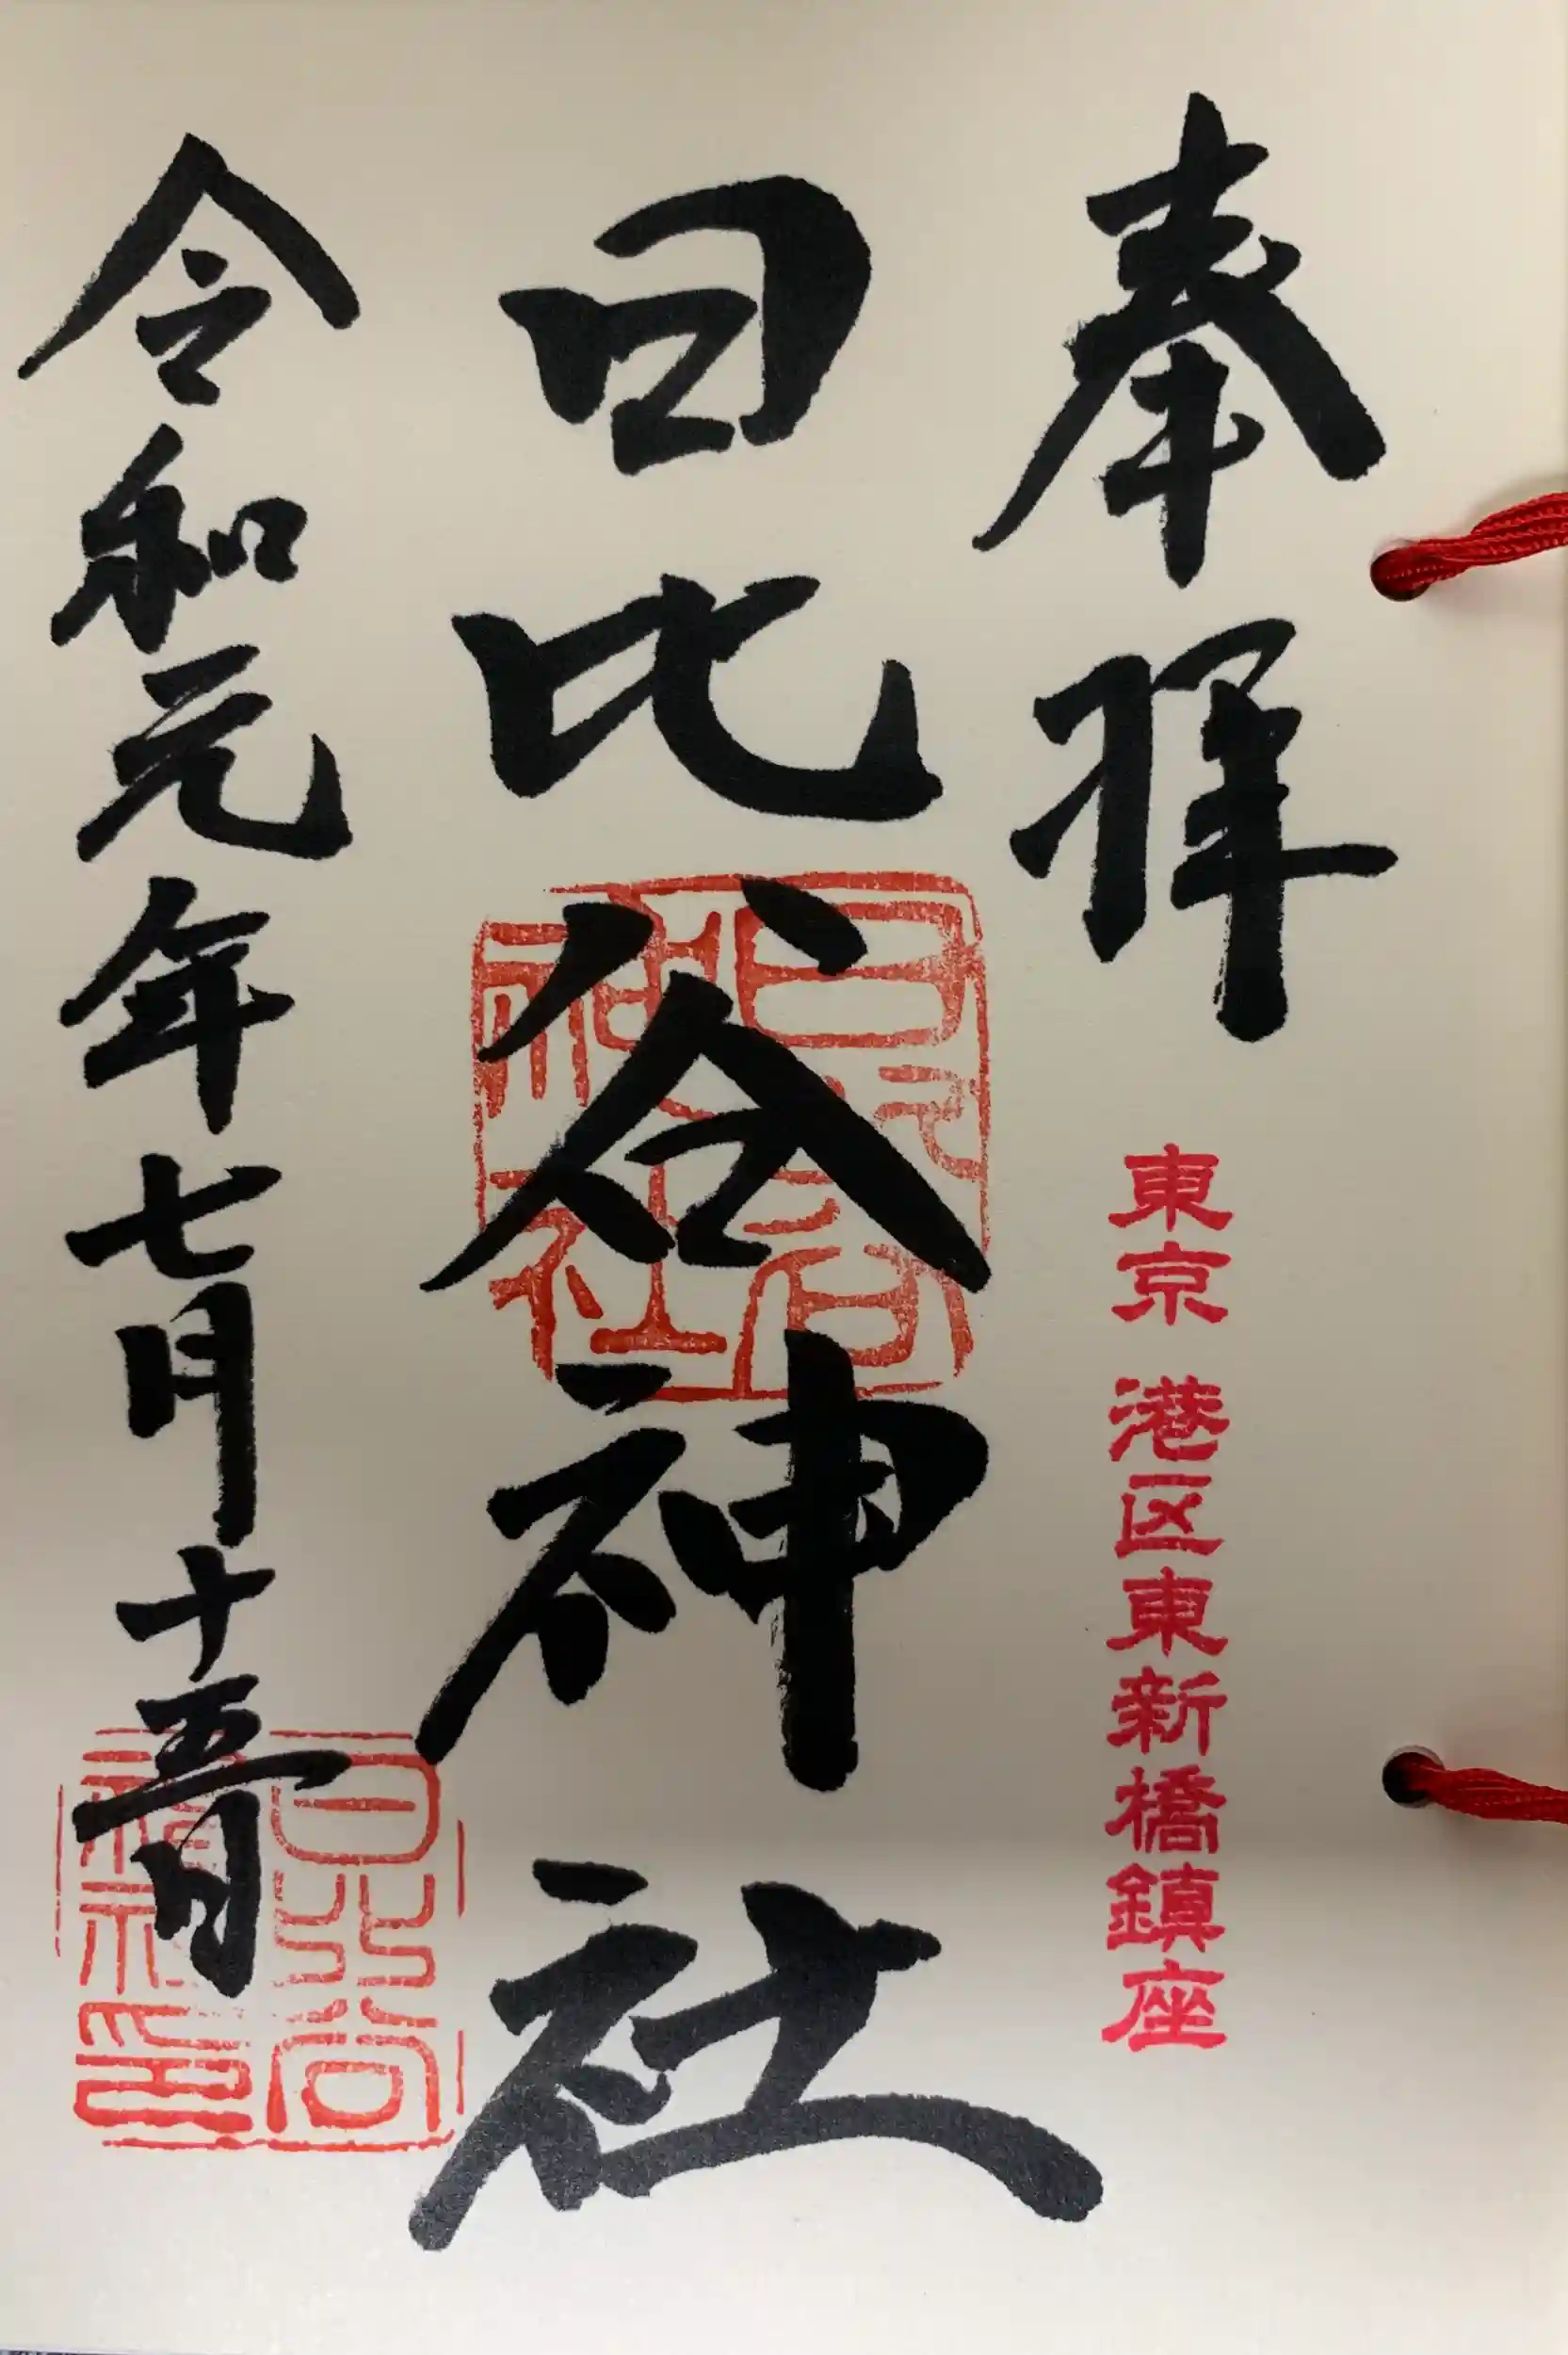 奉拝
東京 港区東新橋鎮座
日比谷神社
日比谷神社
令和元年七月十五日